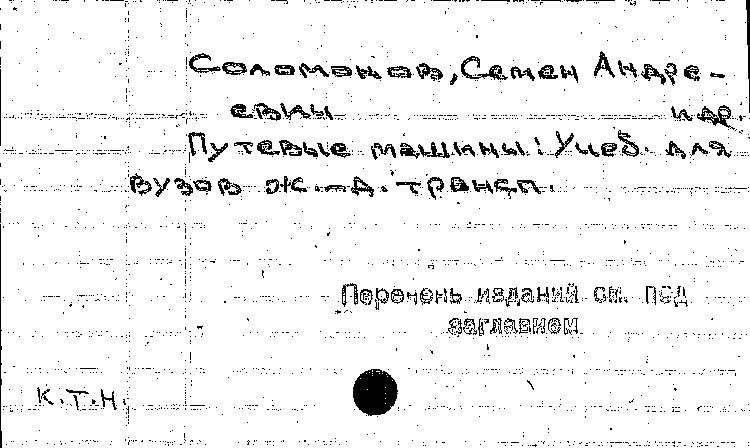 Соломонов, Семен Андре-
евич и др.
Путевые машины: Учеб. для
вузов ж.-д. трансп.
Перечень изданий см. под
заглавием
К.Т.Н.